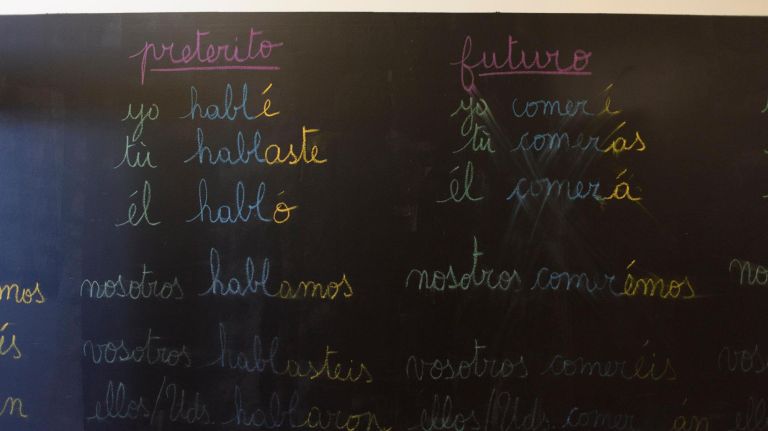 mos
preterito
yo hablé
tú hablaste
él habló
nosotros hablamos
vosotros hablasteis
ellos/Uds. hablaron
futuro
yo comeré
tú comerás
él comerá
nosotros comerémos
vosotros comeréis
ellos/Uds. comerán
no
vos